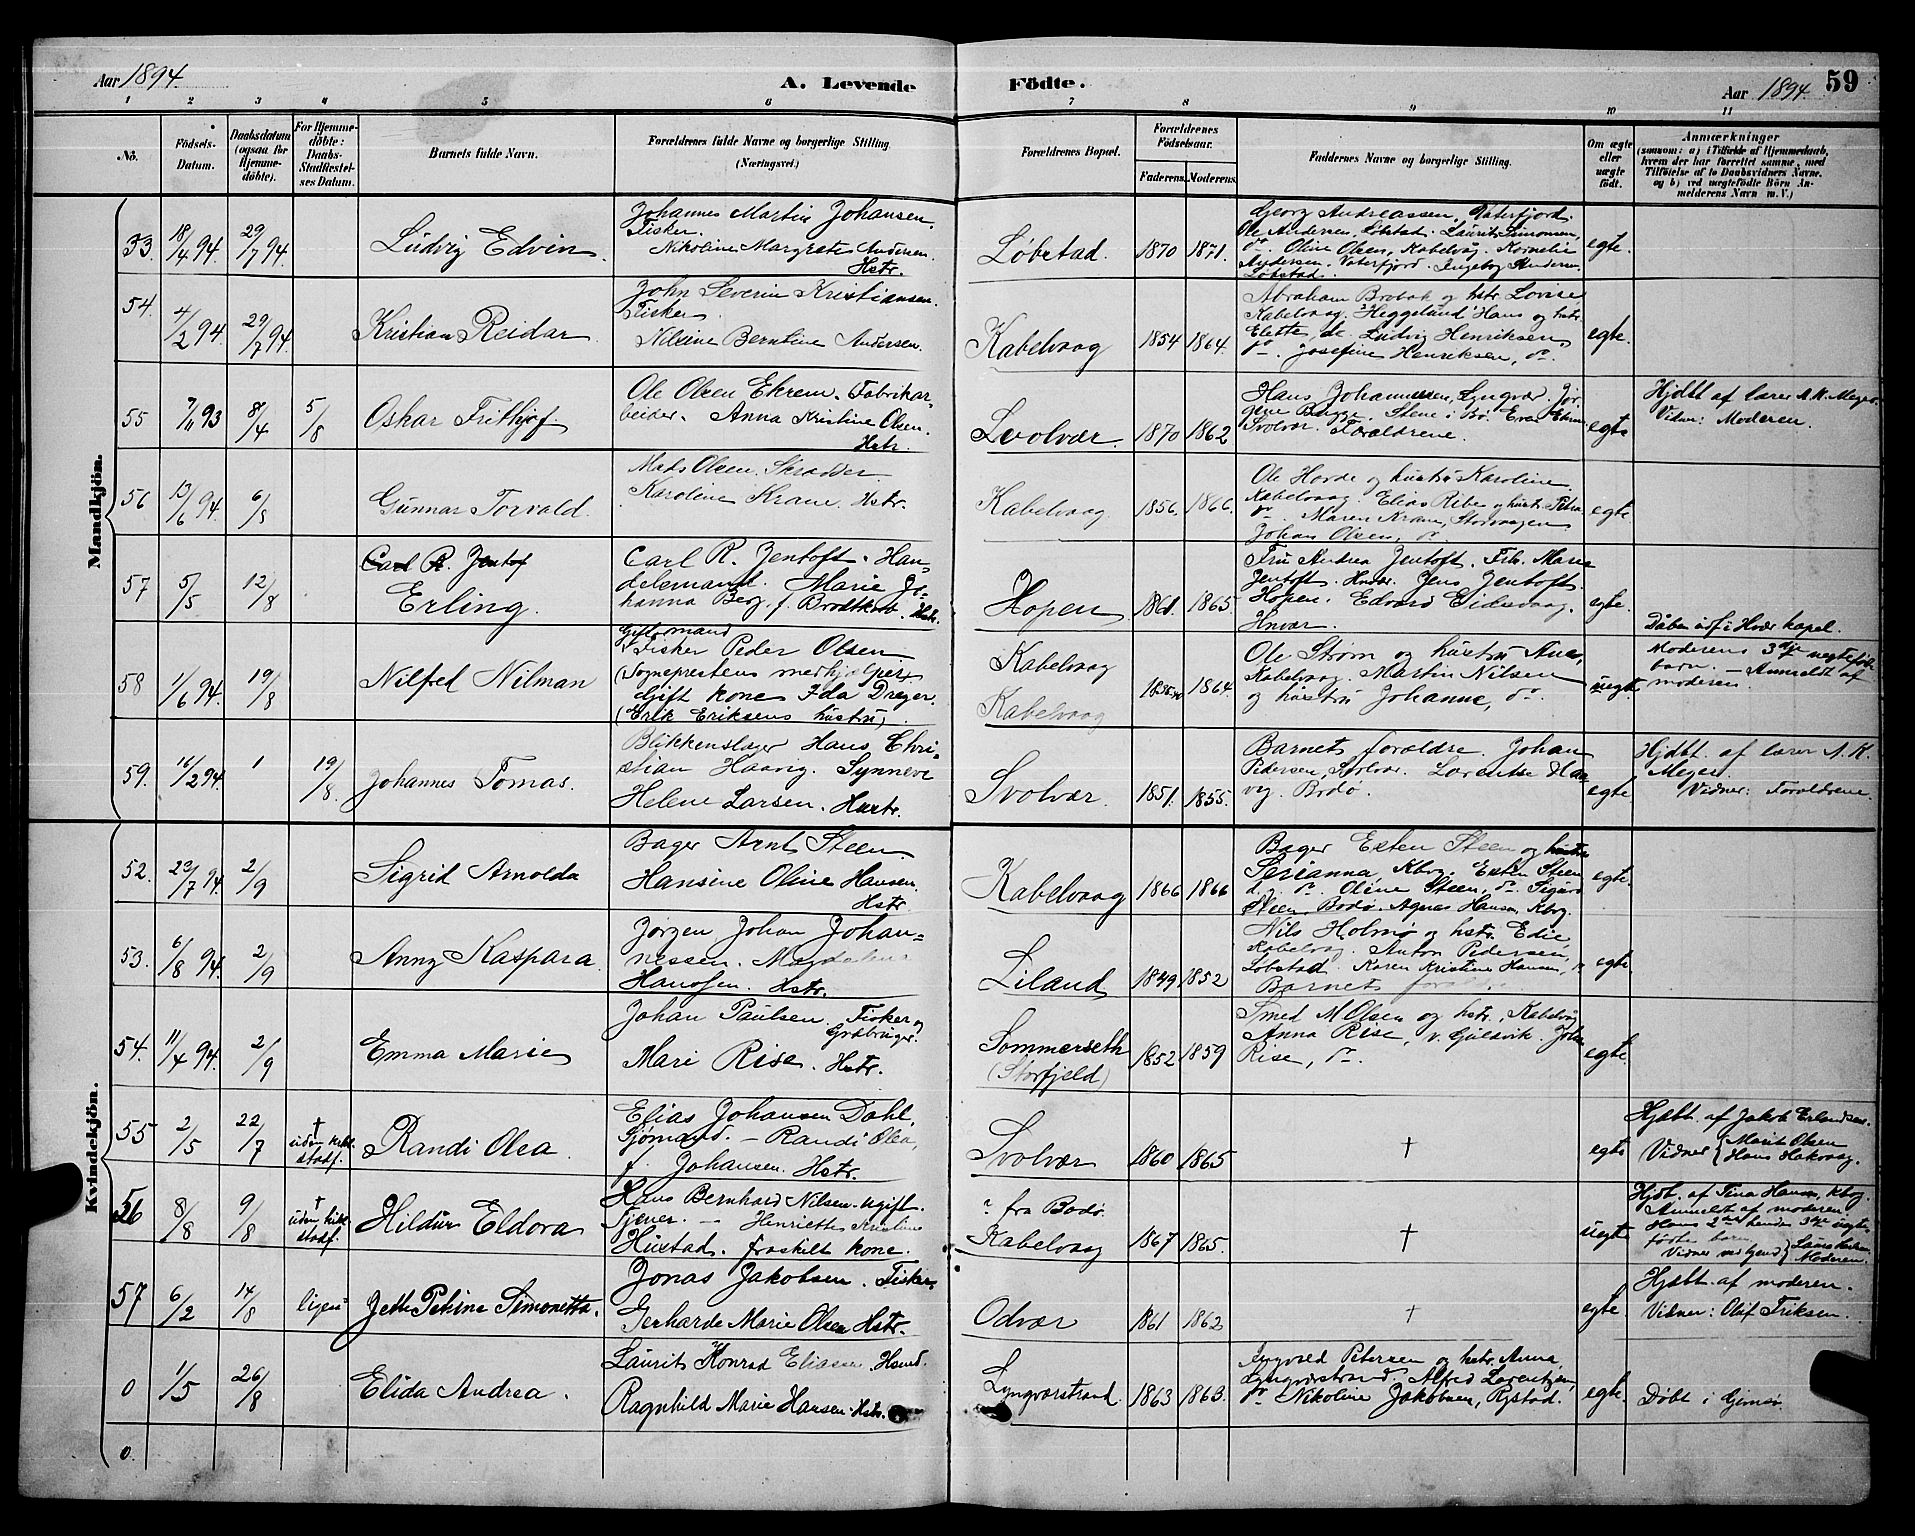 Aar 1894.
A. Levende
Födte.
Aar 1894. 59
1 2 3 4 5 6 7 8 9 10 11
No.
Födsels-
Datum.
Daabsdatum
(ogsaa for
Hjemme-
döbte).
For Hjemme-
döbte:
Daabs-
Stadfæstel-
ses Datum.
Barnets fulde Navn.
Forældrenes fulde Navne og borgerlige Stilling
(Næringsvei.)
Forældrenes Bopæl.
Forældrenes
Födselsaar.
Faderens. Moderens.
Faddernes Navne og borgerlige Stilling.
Om ægte
eller
uægte
födt.
Anmærkninger
(saasom: a) i Tilfælde af Hjemmedaab,
hvem der har forrettet samme, med
Tilföielse af to Daabsvidners Navne,
og b) ved uægtefödte Börn An-
melderens Navn m. V.)
Mandkjön.
53. 18/4 94. 29/7 94. Ludvig Edvin
Johannes Martin Johansen.
Fisker.
Nikoline Margrete Andersen.
Hstr.
Løbstad. 1870 1871.
Georg Andreassen, Vaterfjord.
Ole Andersen, Løbstad. Laurits Simonsen,
do. Oline Olsen, Kabelvåg. Kornelie
Andersen. Vaterfjord. Ingebog Andersen
Løbstad.
egte.
54. 4/2 94. 29/7 94. Kristian Reidar
John Severin Kristiansen.
Fisker.
Nilsine Berntine Andersen.
Kabelvaag 1854 1864.
Abraham Brobak og hstr. Lovise
Kabelvaag. Heggelund Hans og hstr.
Elette, do. Ludvig Henriksen
do. Josefine Henriksen, do.
egte.
55 7/11 93 8/4 5/8 Oskar Frithjof
Ole Olsen Ekrem. Fabrikar-
beider. Anna Kristine Olsen.
Hstr.
Svolvær. 1870 1862
Hans Johannessen, Lyngvær. Jør-
gine Bugge. Stene i Bø. Eva Ekrem
Svolvær. Forældrene.
egte
Hjdbt af lærer A. K. Meyer.
Vidner: Moderen.
56 13/6 94. 6/5 Gunnar Torvald.
Mads Olsen. Skrædder
Karoline Krane. Hstr.
Kabelvaag 1856. 1866.
Ole Hovde og hustru Karoline.
Kabelvaag. Elias Ribe og hustr. Petra
do. Maren Krane, Storvaagen
Johan Olsen, do.
egte
57 5/5 12/8
Carl R. Jentof
Erling.
Carl R. Jentoft. Han-
delsmand. Marie Jo-
hanna Berg, f. Brodtkorb. Hstr.
Hopen 1861. 1865.
Fru Andrea Jentoft. Frk. Marie
Jentoft. Hnvær. Jens Jentoft
Hopen. Edvard Eidsvaag.
Hnvær.
egte.
Dåben udf. i Hvær kapel.
58 1/6 94. 19/8 Nilfred Nilman
Gift mand
Fisker Peder Olsen
(Sogneprestens medhjælper
Gift kone Ida Dreyer.
(Erik Eriksens hustru).
Kabelvaag
Kabelvaag
1864.
Ole Strøm og hustru Ane,
Kabelvaag. Martin Nilsen
og hustru Johanne, do.
uegte
Moderens 3die uegtefødte
barn. — Anmeldt af
moderen.
59. 16/2 94 1 19/8. Johannes Tomas.
Blikkenslager Hans Chri-
stian Haavig. Synneve
Helene Larsen. Hustr.
Svolvær. 1851. 1855.
Barnets forældre. Johan
Pedersen, Svolvær. Lorentse Haa-
vig. Bodø.
egte
Hjdbt af lærer A. K.
Meyer.
Vidner: Forældrene
Kvindekjön.
52. 23/7 94. 2/9 Sigrid Arnolda
Bager Arnt Steen.
Hansine Oline Hansen.
Hstr.
Kabelvaag 1866 1866
Bager Esten Steen og hustru
Serianna, Kbvg. Esten Steen
d. y. do. Oline Steen, do. Sigurd
Steen, Bodø. Agnes Hansen, Kbvg.
egte.
53. 6/8 94. 2/9 Anny Kaspara.
Jørgen Johan Johan-
nessen. Magdalena
Hansen. Hstr.
Liland 1849 1852
Nils Holmø og hstr. Edie,
Kabelvaag. Anton Pedersen,
Løbstad. Karen Kristine Hansen,
Barnets forældre
egte
54. 11/4 94. 2/9 Emma Marie
Johan Paulsen. Fisker og
Grdbruger.
Mari Rise. Hstr.
Sommerseth
(Storfjeld)
1852 1859
Smed M Olsen og hstr, Kabelvåg
Anna Rise, v. Gulsvik. Johan
Rise, do.
egte
55 2/5 22/7
†
uden kirk.
stadf.
Randi Olea.
Elias Johansen Dahl,
Sjømand. — Randi Olea,
f. Johansen. Hstr.
Svolvær 1860 1865
†
egte
Hjdbt. af Jakob Erlandsen.
Vidner { Marit Olsen
Hans Hakvaag.
56 8/8 9/8
†
uden kirk.
stadf.
Hildur Eldora
Hans Bernhard Nilsen. ugift.
Tjener. — Henriette Kristine
Hustad. fraskilt kone.
" fra Bodø.
Kabelvaag 1867 1865.
†
uegte
Hjdbt. af Tina Hansen, Kbvg.
Anmeldt af moderen.
Hans 2det hendes 3die uegte
fødte barn.
Moderen.
57 6/2 14/8 ligesaa Jette Petrine Simonetta.
Jonas Jakobsen. Fisker.
Gerharde Marie Olsen Hstr.
Odvær 1861 1862
†
egte
Hjdbt. af moderen.
Vidner: Oluf Eriksen.
0 1/5 26/8 Elida Andrea.
Laurits Konrad Eliasen. Hsmd.
Ragnhild Marie Hansen. Hstr.
Lyngværstrand. 1863 1863.
Ingvold Petersen og hstr. Anna,
Lyngværstrand. Alfred Lorentzen,
do. Nikoline Jakobsen, Rystad.
egte.
Døbt i Gimsø.
0.